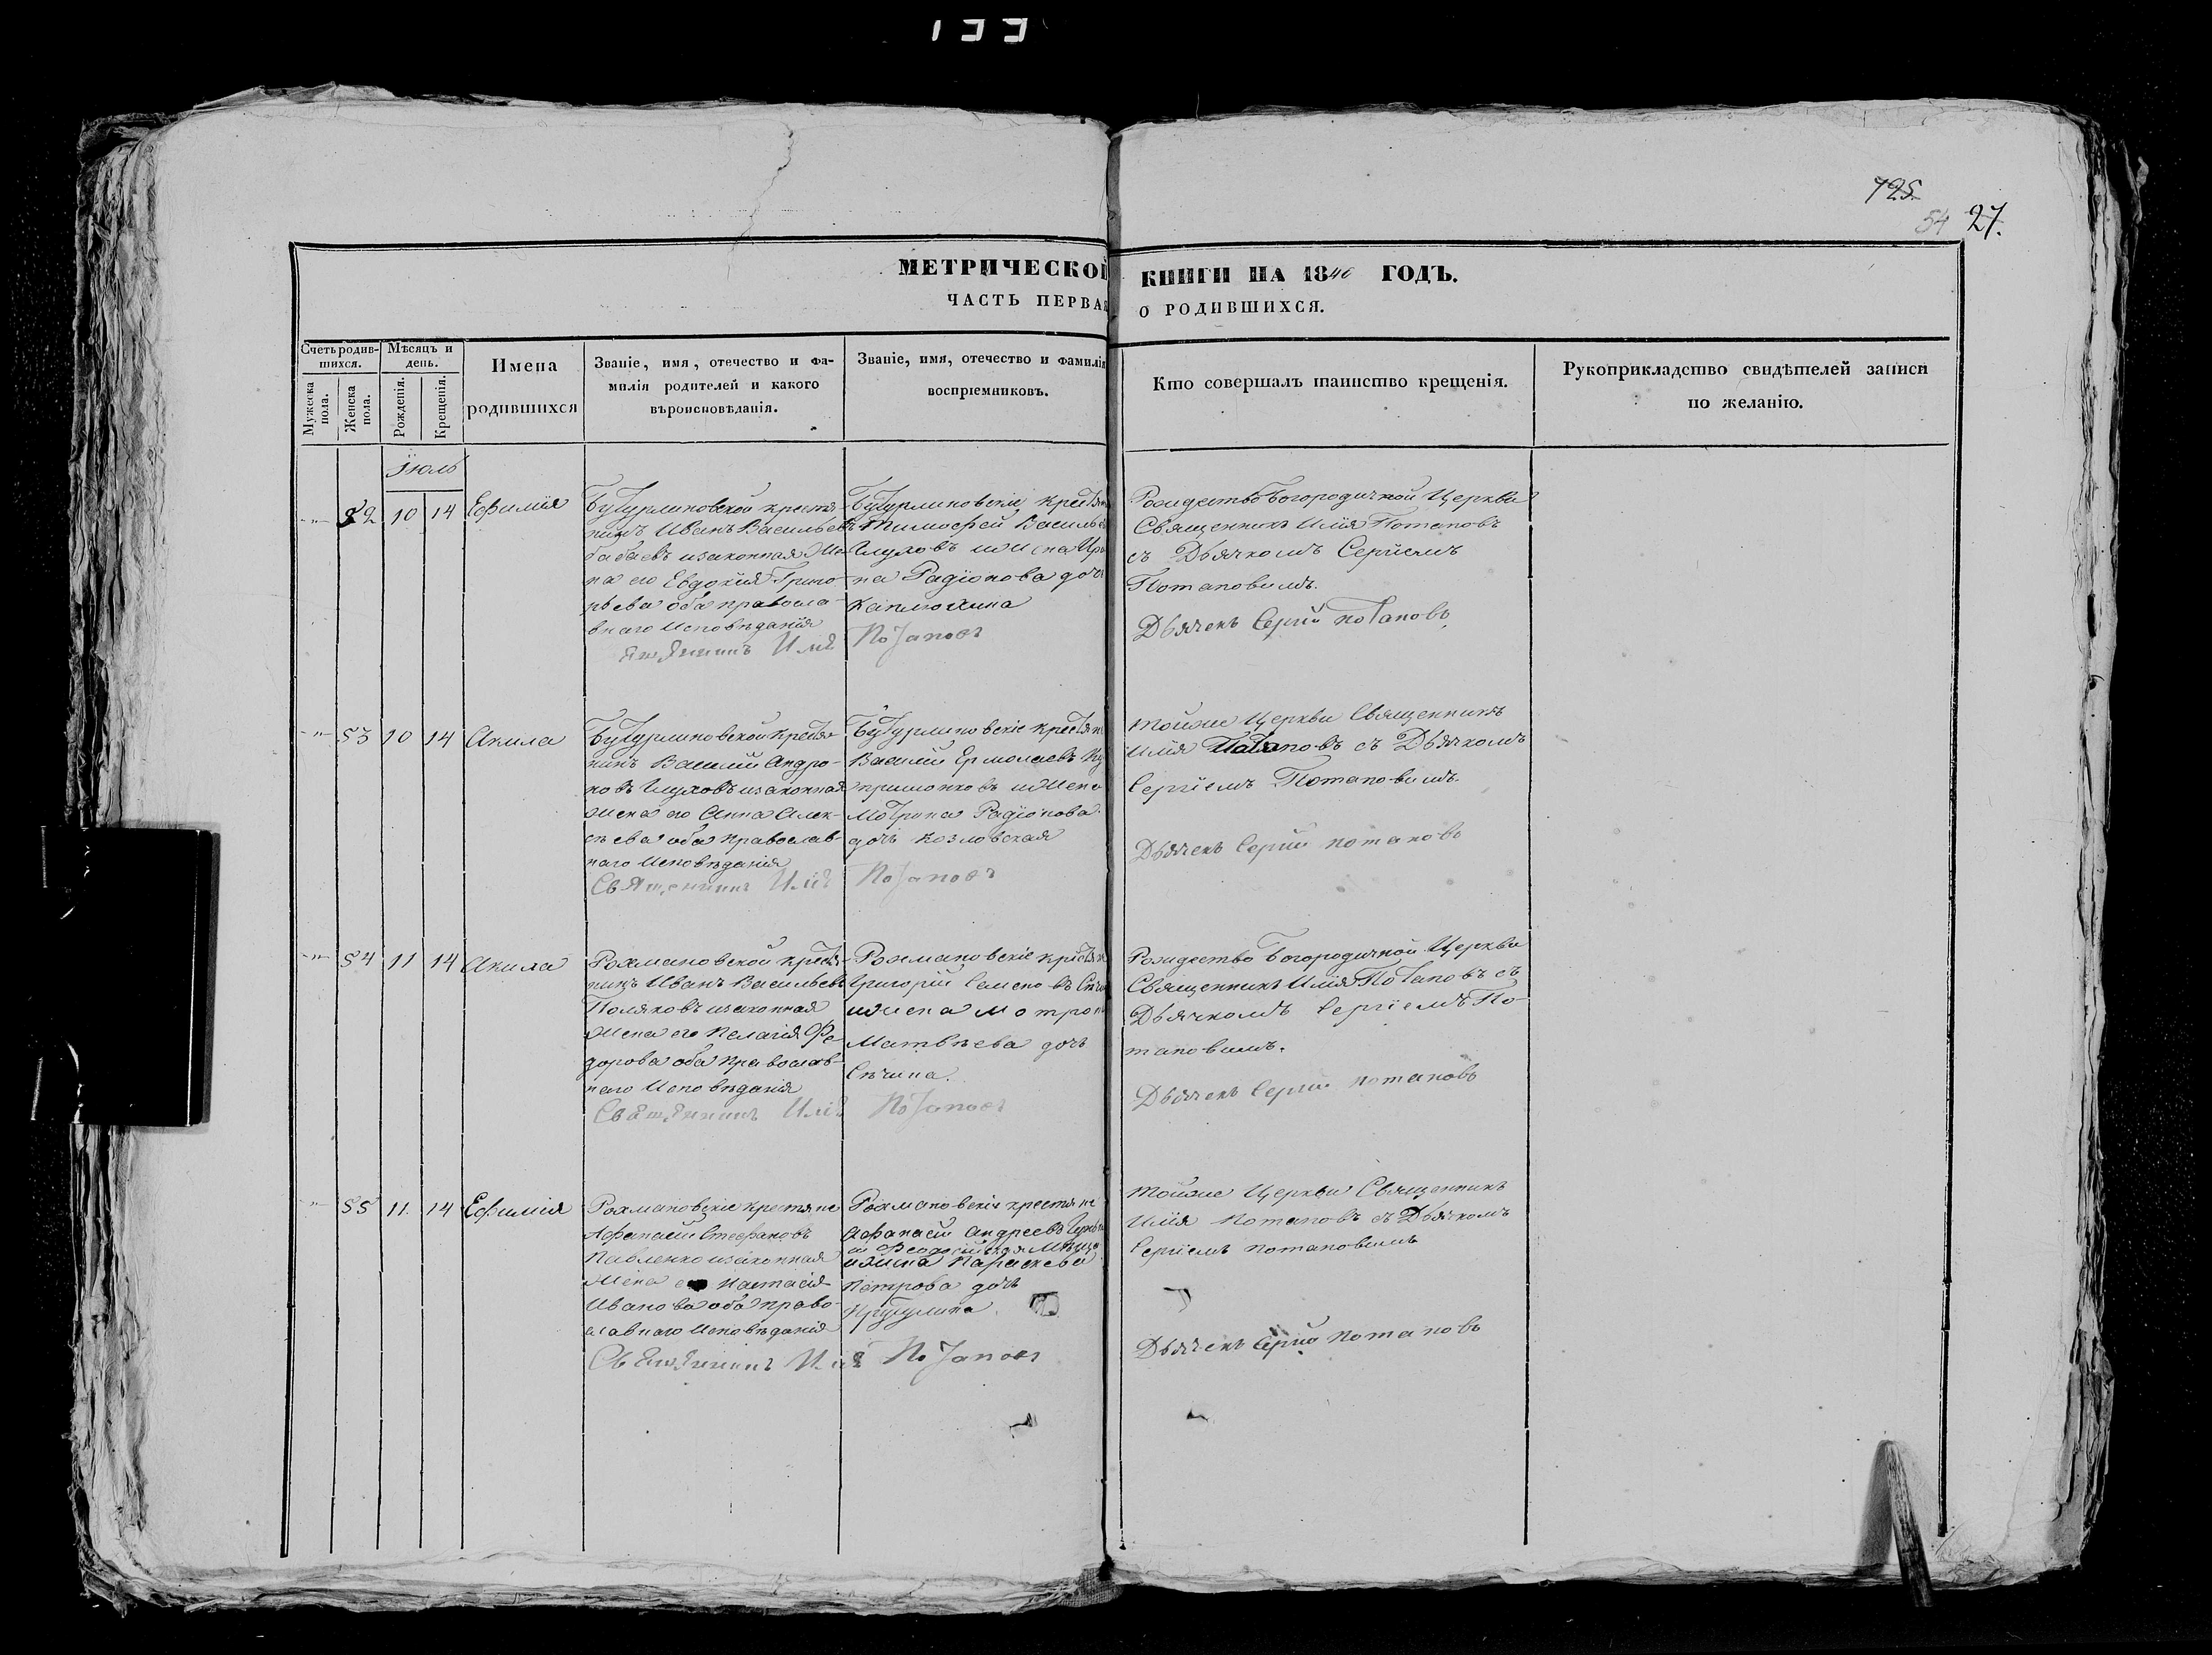 133
725.
54 27.
МЕТРИЧЕСКОЙ КНИГИ НА 1846 ГОДЪ.
ЧАСТЬ ПЕРВАЯ О РОДИВШИХСЯ.
Счетъ родив-
шихся.
Мужеска
пола.
Женска
пола.
Мѣсяцъ и
день.
Рожденія.
Крещенія.
Имена
родившихся
Званіе, имя, отечество и фа-
милія родителей и какого
вѣроисповѣданія.
Званіе, имя, отечество и фамилія
воспріемниковъ.
Кто совершалъ таинство крещенія.
Рукоприкладство свидѣтелей записи
по желанію.
Іюль
52 10 14 Ефимія
Бутурлиновской крестья
нинъ Иванъ Васильевъ
бабаевъ изаконная Же
на его Евдокия Григо-
рьева оба правосла-
внаго Исповѣданія
Бутурлиновскіи крестьян
Тимофей Васильев
Глуховъ ижена Ири
на Радіонова дочь
Рождество Богородичной Церкви
Священникъ Илія Потаповъ
съ Дьячкомъ Сергіемъ
Потаповымъ.
Дьячекъ Сергій потаповъ
Илія Потаповъ
53 10 14 Акила
Бутурлиновской крестья-
нинъ Василій Андро-
новъ Глуховъ изаконная
жена его Анна Алек-
сѣева оба православ-
наго Исповѣданія
Бутурлиновскіе крестьян
Василій Ермолаевъ
ижена
Мотрона Радіонова
дочь Козловская
Священникъ Илія Потаповъ
тойже Церкви Священникъ
Илія Потаповъ съ Дьячкомъ
Сергіемъ Потаповымъ.
Дьячекъ Сергій потаповъ
54 11 14 Акила
Рохмановской крестья-
нинъ Иванъ Васильевъ
Поляковъ изаконная
Жена его Пелагія Фе-
дорова оба православ-
наго Исповѣданія
Рохмановскіе крестьян
Григорій Семеновъ
ижена Мотрон
Матвѣева дочь
Сѣчина.
Священникъ Илія Потаповъ
Рождество Богородичной Церкви
Священникъ Илія Потаповъ съ
Дьячкомъ Сергіемъ По-
таповымъ.
Дьячекъ Сергій потаповъ
55 11. 14 Ефимія
Рохмановскіе крестьяне
Афанасій Стефановъ
Павленко изаконная
Жена его Настасія
Иванова оба право-
славнаго Исповѣданія
Рохмановскіи крестьяне
Афанасій Андреевъ
ижена Параскева
Петрова дочь
Священникъ Илія Потаповъ
тойже Церкви Священникъ
Илія Потаповъ съ Дьячкомъ
Сергіемъ потаповымъ
Дьячекъ Сергій потаповъ